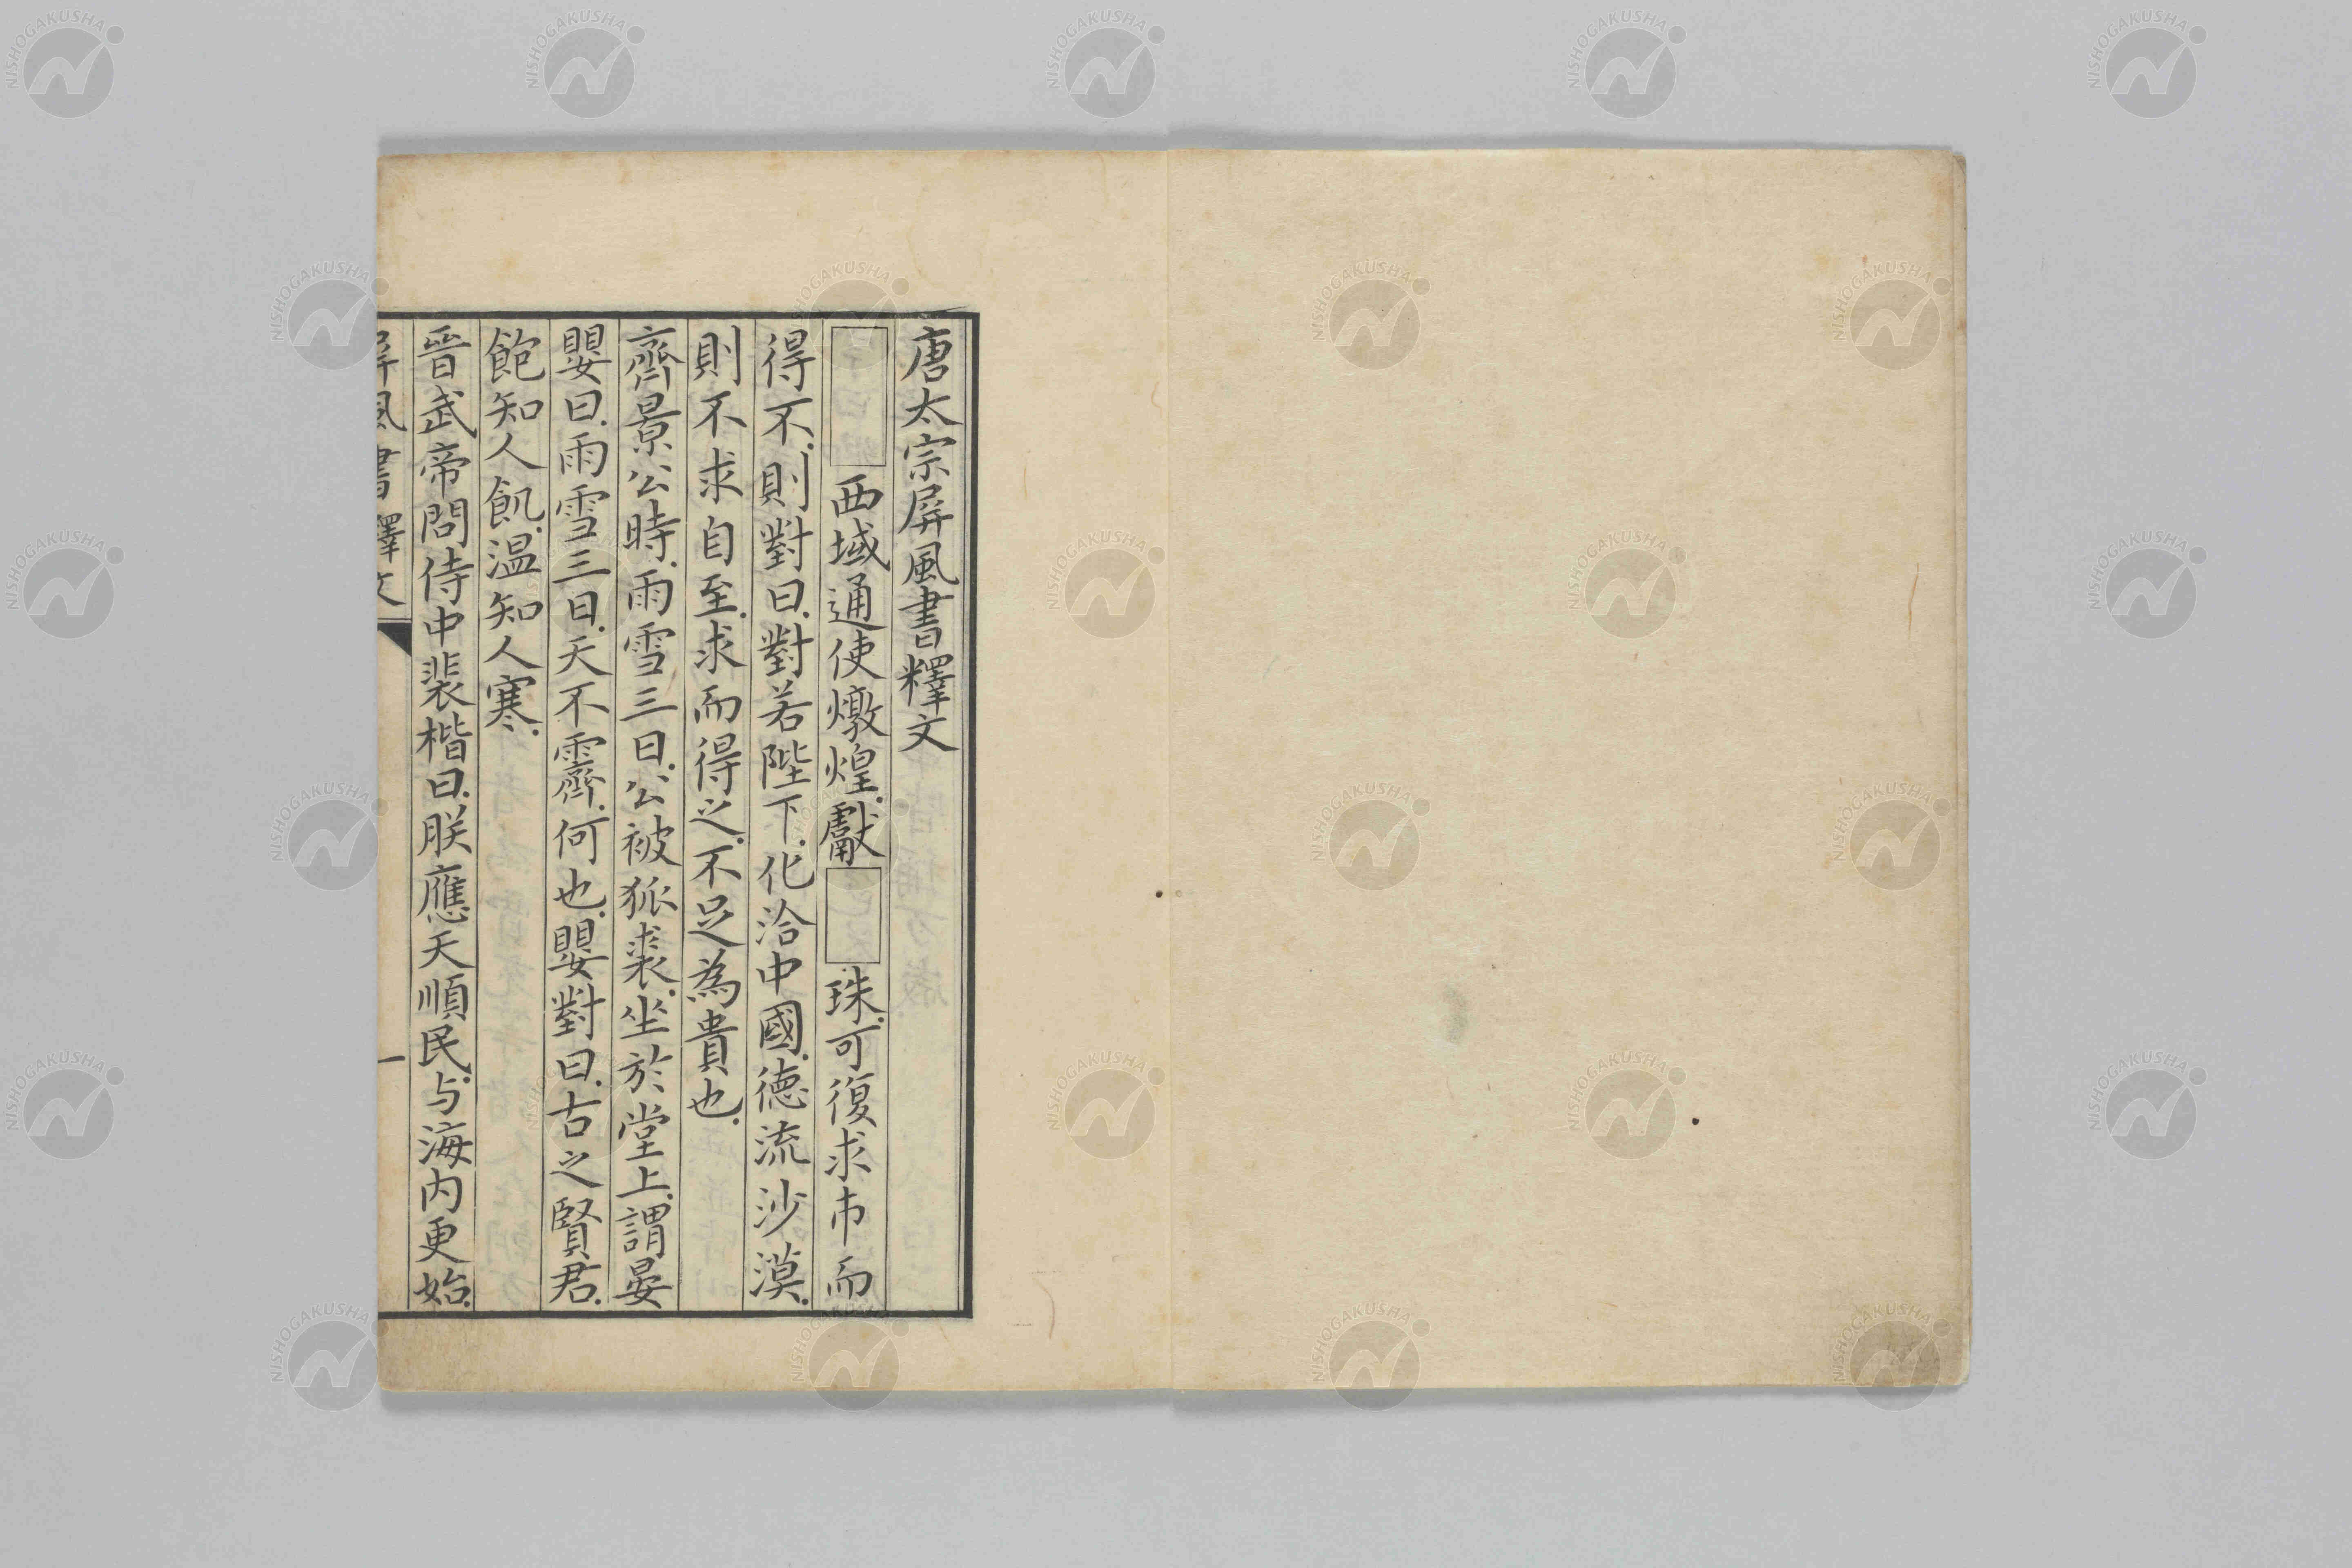 唐太宗屏風書釋文
西域通使燉煌.獻 珠.可復求市而
得不.則對曰.對若陛下.化洽中國.德流沙漠.
則不求自至.求而得之.不足為貴也.
齊景公時.雨雪三日.公被狐裘.坐於堂上.謂晏
嬰曰.雨雪三日.天不霽.何也.嬰對曰.古之賢君.
飽知人飢.温知人寒.
晉武帝問侍中裴楷曰.朕應天順民.与海内更始.
屏風書釋文
一
NISHOGAKUSHA